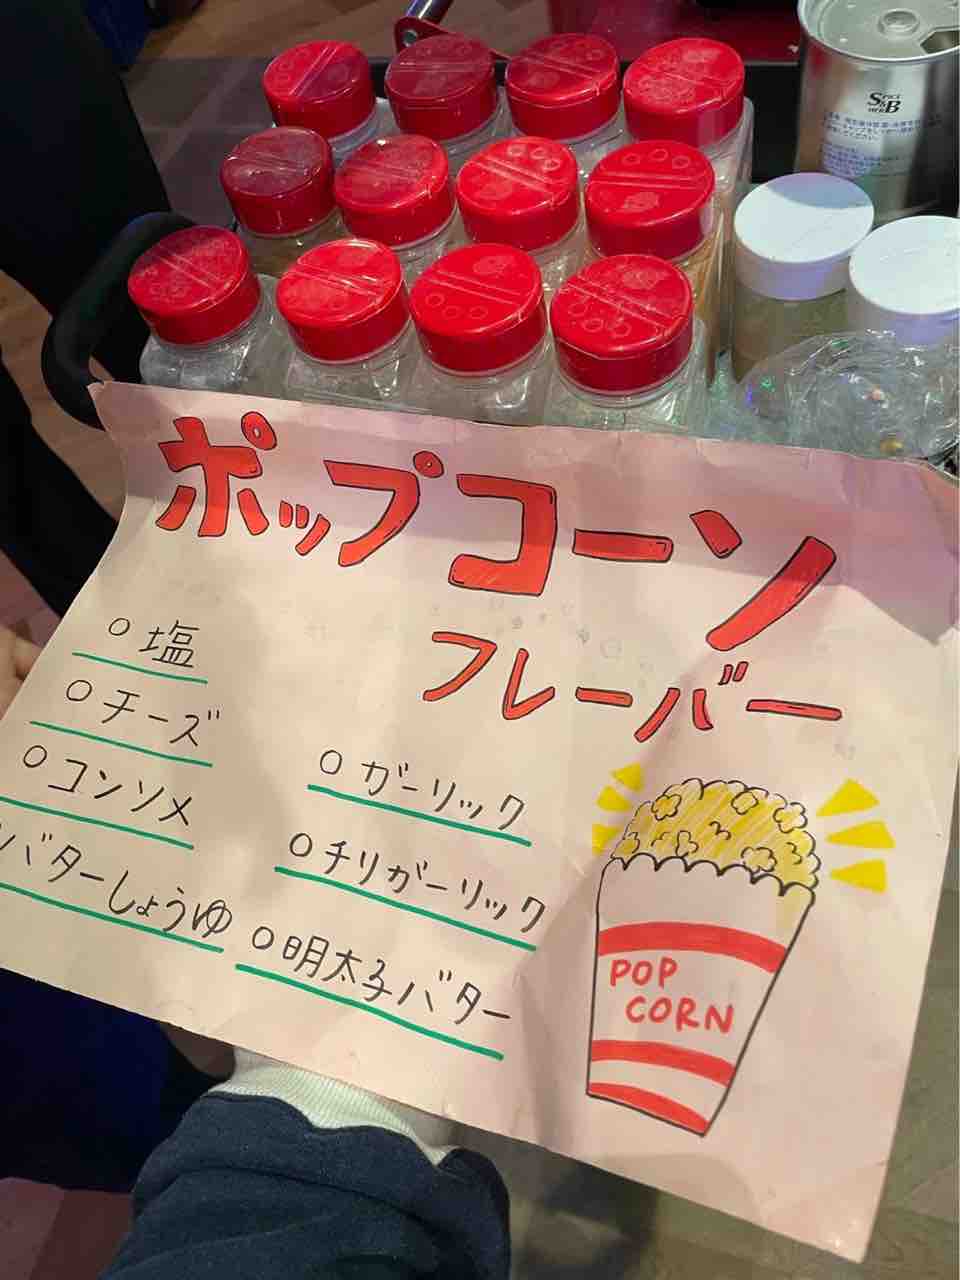 S&B
SPICE
HERB
ポップコーン
フレーバー
○塩
○チーズ
○コンソメ
バターしょうゆ
○ガーリック
○チリガーリック
○明太子バター
POP
CORN